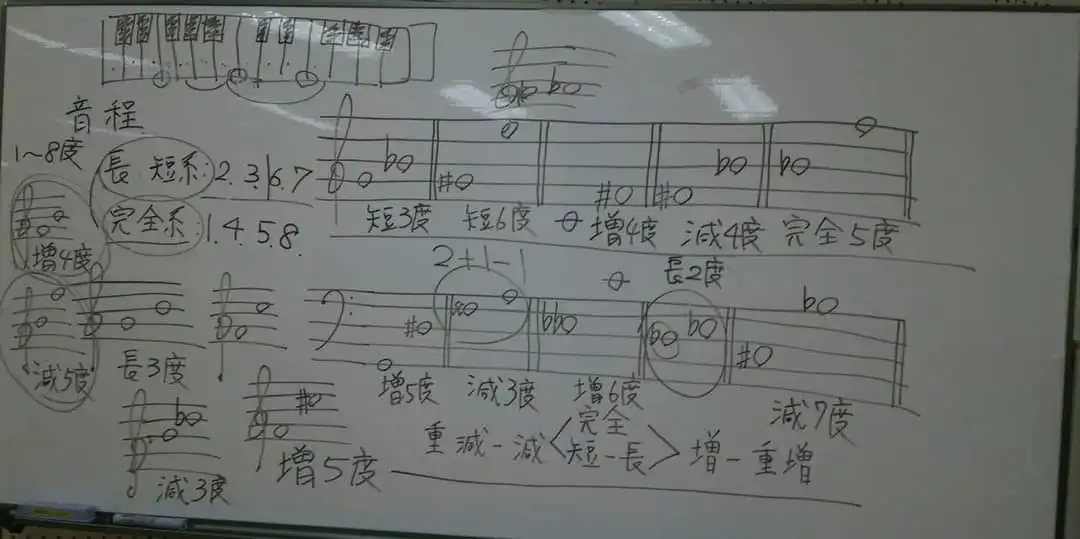 音程
1~8度
長 短系:2.3.6.7
完全系:1.4.5.8.
増4度
短3度 短6度 増4度 減4度 完全5度
2+1-1
長2度
減5度
長3度
増5度 減3度 増6度 減7度
減3度
増5度
重減-減<完全 短-長>増-重増